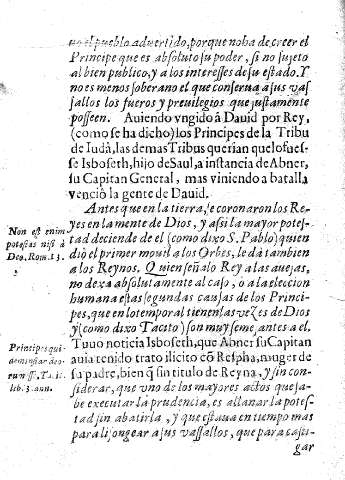 no el pueblo aduertido, porque no ha de creer el
Principe que es absoluto su poder, si no sujeto
al bien publico, y a los interesses de su estado. Y
no es menos soberano el que conserua a sus vas
sallos los fueros y preuilegios que justamente
posseen. Auiendo vngido à Dauid por Rey,
(como se ha dicho) los Principes de la Tribu
de Iudà, las demas Tribus querian que lo fues-
se Isboseth, hijo de Saul, a instancia de Abner,
su Capitan General, mas viniendo a batalla
venciò la gente de Dauid.
Antes que en la tierra, se coronaron los Re-
yes en la mente de Dios, y assi la mayor potes-
tad deciende de el (como dixo S. Pablo) quien
diò el primer mouil a los Orbes, le dà tambien
a los Reynos. Quien señalo Rey a las auejas,
no dexa absolutamente al caso, ò a la eleccion
humana estas segundas causas de los Princi-
pes, que en lo temporal tienen las vezes de Dios
y (como dixo Tacito) son muy semejantes a el.
Tuuo noticia Isboseth, que Abner su Capitan
auia tenido trato ilicito cõ Respha, muger de
su padre, bien q̃ sin titulo de Reyna, y sin con-
siderar, que uno de los mayores actos que sa-
be executar la prudencia, es allanar la potes-
tad sin abatirla, y que estaua en tiempo mas
para lisongear a sus vassallos, que para casti-
gar
Non est enim
potestas nisi à
Deo. Rom. 13.
Principes qui-
dem instar deo-
rum esse. Tacit.
lib. 3. ann.